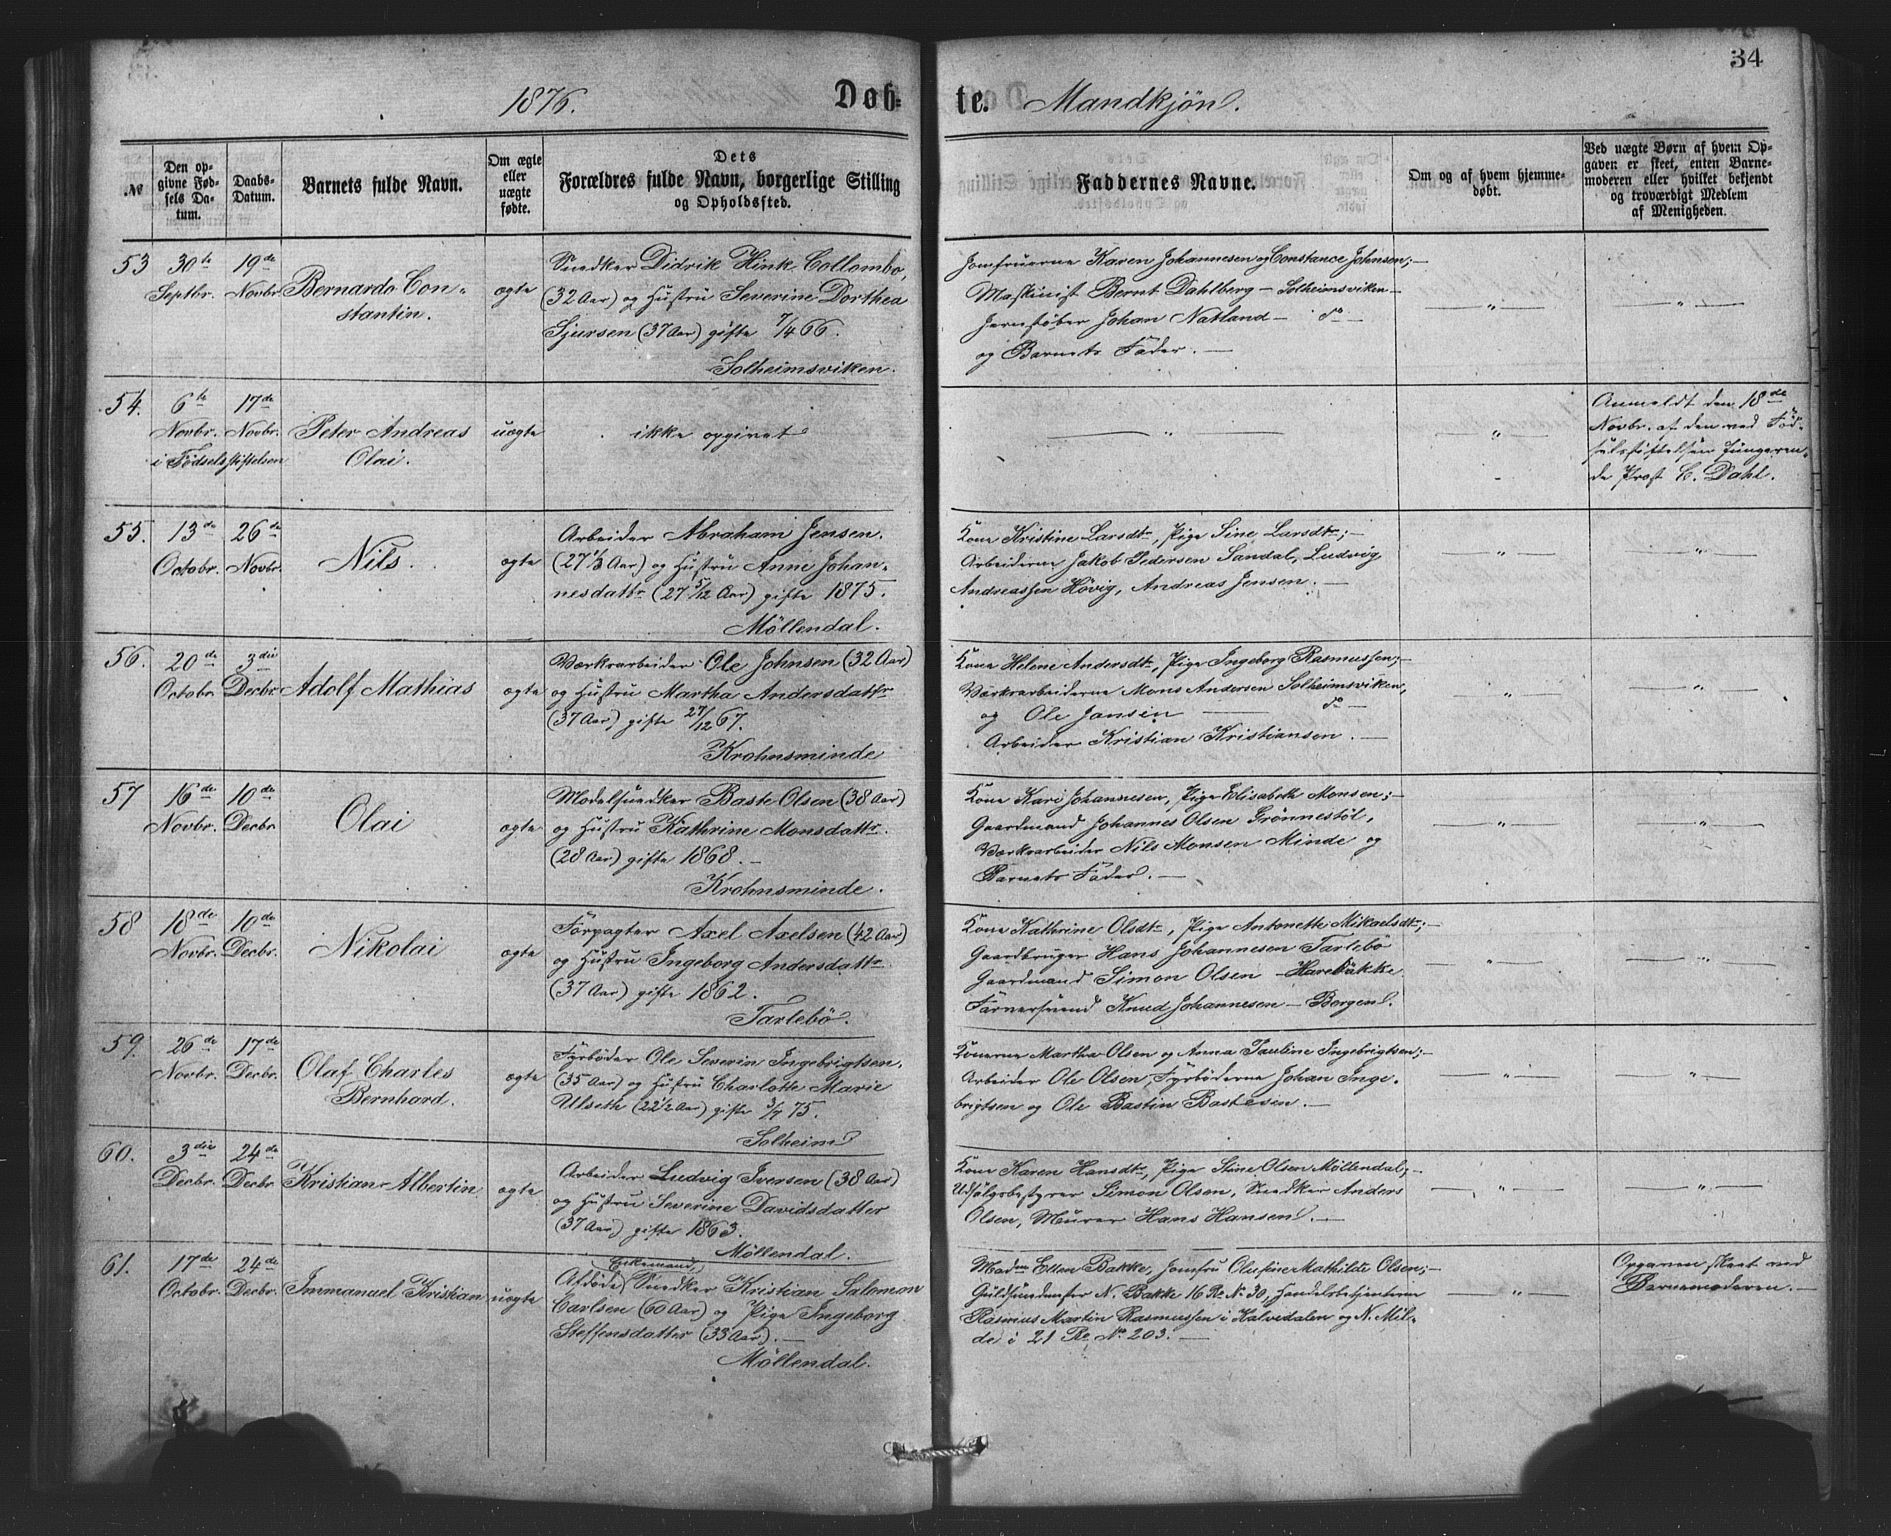 34
1876. Döb= te. Mandkjön.
№
Den op-
givne Fød-
sels Da-
tum.
Daabs-
Datum.
Barnets fulde Navn.
Om ægte
eller
uægte
fødte.
Dets
Forældres fulde Navn, borgerlige Stilling
og Opholdssted.
Faddernes Navne.
Om og af hvem hjemme-
døbt.
Ved uægte Børn af hvem Op-
gaven er skeet, enten Barne-
moderen eller hvilket bekjendt
og troværdigt Medlem
af Menigheden.
53
30te
Septbr.
19de
Novbr.
Bernardo Con-
stantin.
ægte
Snedker Didrik Hink Collombo,
(32 Aar) og Hustru Severine Dorthea
Sjursen (37 Aar) gifte 7/4 66.
Solheimsviken.
Jomfruerne Karen Johannesen og Constance Johnsen;—
Maskinist Bernt Dahlberg — Solheimsviken —
Jernstøber Johan Natland — do —
og Barnets Fader. —
— „ —
— „ —
54.
6te
Novbr.
17de
Novbr.
i Fødselsstiftelsen
Peter Andreas
Olai.
uægte
ikke opgivet
— „ —
„
Anmeldt den 18de
Novbr. af den ved Fød-
selsstiftelsen fungeren-
de Præst C. Dahl.
55.
13de
Octobr.
26de
Novbr.
Nils.
ægte
Arbeider Abraham Jensen.
(27 1/3 Aar) og Hustru Anne Johan-
nesdattr (27 5/12 Aar) gifte 1875.
Möllendal.
Kone Kristine Larsdtr, Pige Sine Larsdtr;—
Arbeiderne Jakob Pedersen Sandal, Ludvig
Andreassen Hövig, Andreas Jensen. —
— „ —
— „ —
56.
20de
Octobr.
3die
Decbr.
Adolf Mathias
ægte
Værkarbeider Ole Johnsen (32 Aar)
og Hustru Martha Andersdattr
(37 Aar) gifte 27/12 67.
Krohnsminde
Kone Helene Andersdtr, Pige Ingeborg Rasmussen;—
Værkarbeiderne Mons Andersen Solheimsviken,
og Ole Jansen — do —
Arbeider Kristian Kristiansen. —
— „ —
— „ —
57
16de
Novbr.
10de
Decbr.
Olai
ægte
Modelsnedker Baste Olsen (38 Aar)
og Hustru Kathrine Monsdattr.
(28 Aar) gifte 1868. —
Krohnsminde.
Kone Kari Johannesen, Pige Elisabeth Monsen;—
Gaardmand Johannes Olsen Grönnestöl,
Værkarbeider Nils Monsen Minde og
Barnets Fader. —
— „ —
— „ —
58
18de
Novbr.
10de
Decbr.
Nikolai
ægte
Forpagter Axel Axelsen (42 Aar)
og Hustru Ingeborg Andersdattr.
(37 Aar) gifte 1862.
Tarlebö.
Kone Kathrine Olsdtr, Pige Antonette Mikaelsdtr;—
Gaardbruger Hans Johannesen Tarlebö
Gaardmand Simon Olsen — Harebakke
Farversvend Knud Johannesen — Bergen.
— „ —
— „ —
59.
26de
Novbr.
17de
Decbr.
Olaf Charles
Bernhard.
ægte
Fyrböder Ole Severin Ingebrigtsen.
(35 Aar) og Hustru Charlotte Marie
Ulseth (22 1/2 Aar) gifte 3/7 75.
Solheim
Konerne Martha Olsen og Anna Pauline Ingebrigtsen;—
Arbeider Ole Olsen, Fyrböderne Johan Inge-
brigtsen og Ole Bastin Bastesen. —
— „ —
— „ —
60.
3die
Decbr.
24de
Decbr.
Kristian Albertin
ægte
Arbeider Ludvig Iversen (38 Aar)
og Hustru Severine Davidsdatter
(37 Aar) gifte 1863.
Möllendal.
Kone Karen Hansdtr, Pige Stine Olsen Möllendal;—
Udsalgsbestyrer Simon Olsen, Snedker Anders
Olsen, Murer Hans Hansen. —
— „ —
— „ —
61.
17de
Octobr.
24de
Decbr.
Immanuel Kristian
uægte
Enkemand,
Afdöde Snedker Kristian Salomon
Carlsen (60 Aar) og Pige Ingeborg
Steffensdatter (33 Aar). —
Möllendal.
Madm Ellen Bakke, Jomfru Olufine Mathilde Olsen;—
Guldsmedmester N. Bakke 16 Ro No 30, Handelsbetjenterne
Rasmus Martin Rasmussen i Kalvedalen og N. Mil-
de i 21 Ro No 203. —
— „ —
Opgaven skeet ved
Barnemoderen. —